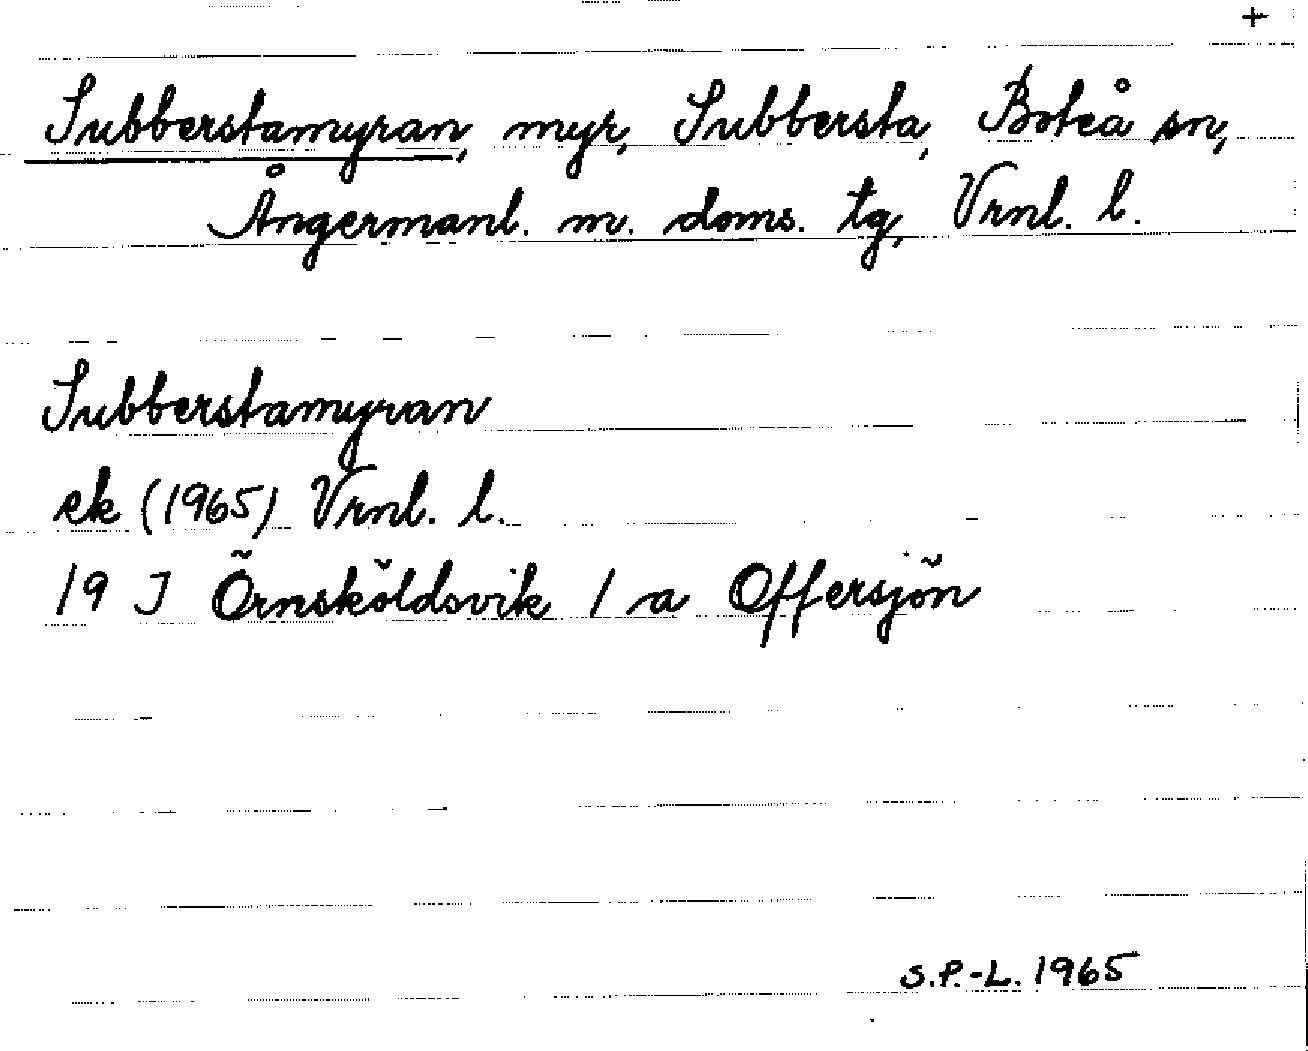 +
Subberstamyran, myr, Subbersta, Boteå sn,
Ångermanl. m. doms. tg, Vrnl. l.
Subberstamyran
ek (1965) Vrnl. l.
19 J Örnsköldsvik 1 a Offersjön
S.P.-L. 1965